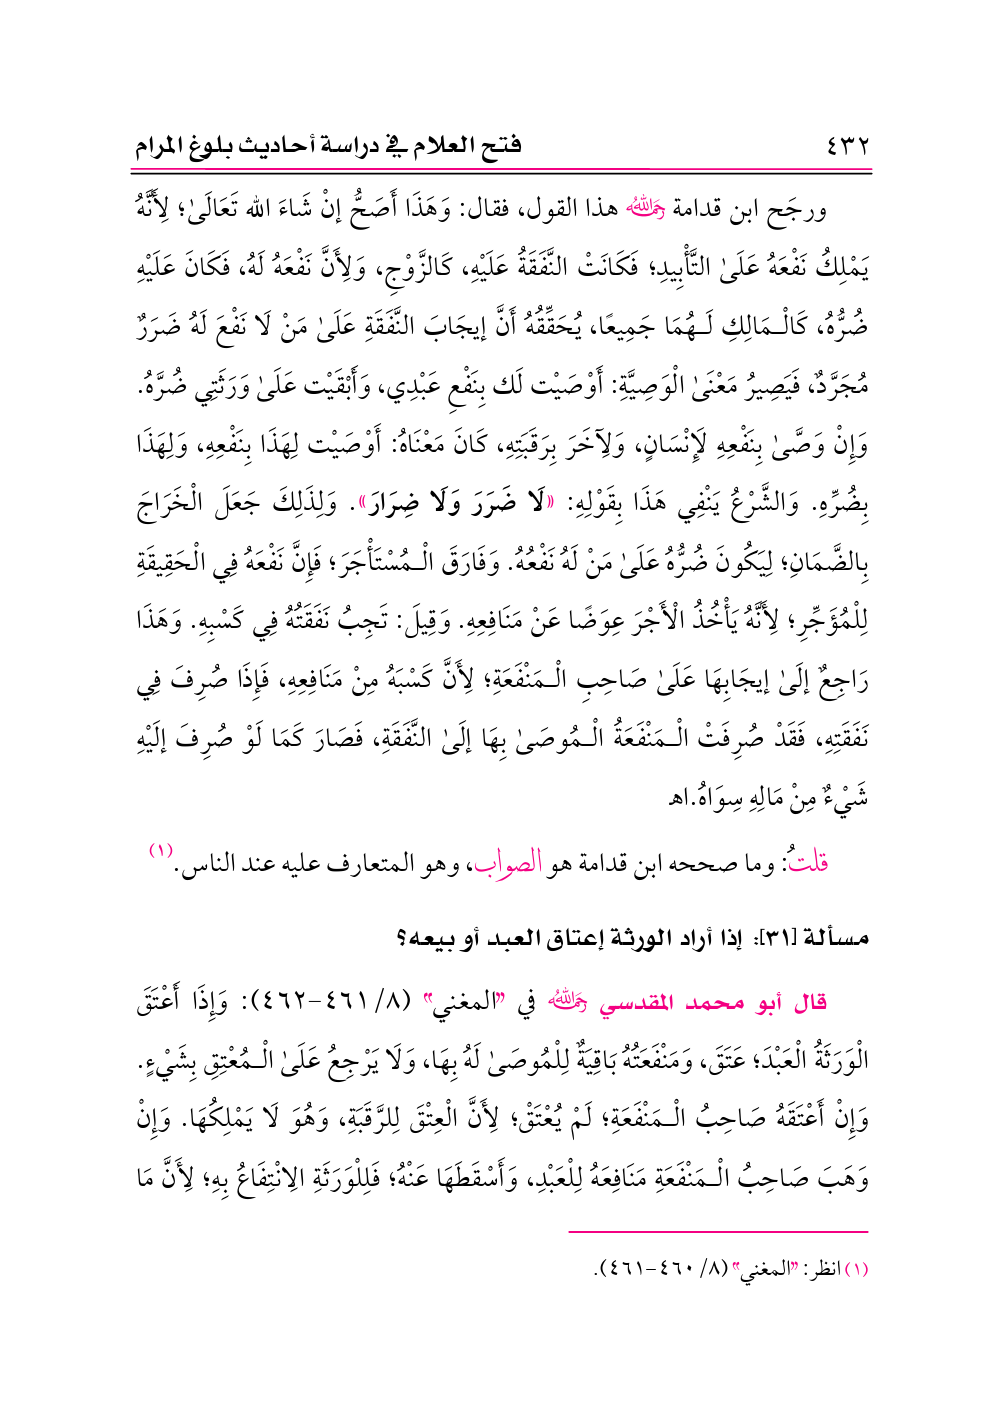 ٤٣٢ فتح العلام في دراسة أحاديث بلوغ المرام
ورجَح ابن قدامة رحمه الله هذا القول، فقال: وَهَذَا أَصَحُّ إنْ شَاءَ الله تَعَالَىٰ؛ لِأَنَّهُ
يَمْلِكُ نَفْعَهُ عَلَىٰ التَّأْبِيدِ؛ فَكَانَتْ النَّفَقَةُ عَلَيْهِ، كَالزَّوْجِ، وَلِأَنَّ نَفْعَهُ لَهُ، فَكَانَ عَلَيْهِ
ضُرُّهُ، كَالْـمَالِكِ لَـهُمَا جَمِيعًا، يُحَقِّقُهُ أَنَّ إيجَابَ النَّفَقَةِ عَلَىٰ مَنْ لَا نَفْعَ لَهُ ضَرَرٌ
مُجَرَّدٌ، فَيَصِيرُ مَعْنَىٰ الْوَصِيَّةِ: أَوْصَيْت لَك بِنَفْعِ عَبْدِي، وَأَبْقَيْت عَلَىٰ وَرَثَتِي ضُرَّهُ.
وَإِنْ وَصَّىٰ بِنَفْعِهِ لَإِنْسَانٍ، وَلِآخَرَ بِرَقَبَتِهِ، كَانَ مَعْنَاهُ: أَوْصَيْت لِهَذَا بِنَفْعِهِ، وَلِهَذَا
بِضُرِّهِ. وَالشَّرْعُ يَنْفِي هَذَا بِقَوْلِهِ: «لَا ضَرَرَ وَلَا ضِرَارَ». وَلِذَلِكَ جَعَلَ الْخَرَاجَ
بِالضَّمَانِ؛ لِيَكُونَ ضُرُّهُ عَلَىٰ مَنْ لَهُ نَفْعُهُ. وَفَارَقَ الْـمُسْتَأْجَرَ؛ فَإِنَّ نَفْعَهُ فِي الْحَقِيقَةِ
لِلْمُؤَجِّرِ؛ لِأَنَّهُ يَأْخُذُ الْأَجْرَ عِوَضًا عَنْ مَنَافِعِهِ. وَقِيلَ: تَجِبُ نَفَقَتُهُ فِي كَسْبِهِ. وَهَذَا
رَاجِعٌ إلَىٰ إيجَابِهَا عَلَىٰ صَاحِبِ الْـمَنْفَعَةِ؛ لِأَنَّ كَسْبَهُ مِنْ مَنَافِعِهِ، فَإِذَا صُرِفَ فِي
نَفَقَتِهِ، فَقَدْ صُرِفَتْ الْـمَنْفَعَةُ الْـمُوصَىٰ بِهَا إلَىٰ النَّفَقَةِ، فَصَارَ كَمَا لَوْ صُرِفَ إلَيْهِ
شَيْءٌ مِنْ مَالِهِ سِوَاهُ.اهـ
قلتُ: وما صححه ابن قدامة هو الصواب، وهو المتعارف عليه عند الناس.(١)
مسألة [٣١]: إذا أراد الورثة إعتاق العبد أو بيعه؟
قال أبو محمد المقدسي رحمه الله في "المغني" (٨/ ٤٦١-٤٦٢): وَإِذَا أَعْتَقَ
الْوَرَثَةُ الْعَبْدَ؛ عَتَقَ، وَمَنْفَعَتُهُ بَاقِيَةٌ لِلْمُوصَىٰ لَهُ بِهَا، وَلَا يَرْجِعُ عَلَىٰ الْـمُعْتِقِ بِشَيْءٍ.
وَإِنْ أَعْتَقَهُ صَاحِبُ الْـمَنْفَعَةِ؛ لَمْ يُعْتَقْ؛ لِأَنَّ الْعِتْقَ لِلرَّقَبَةِ، وَهُوَ لَا يَمْلِكُهَا. وَإِنْ
وَهَبَ صَاحِبُ الْـمَنْفَعَةِ مَنَافِعَهُ لِلْعَبْدِ، وَأَسْقَطَهَا عَنْهُ؛ فَلِلْوَرَثَةِ الِانْتِفَاعُ بِهِ؛ لِأَنَّ مَا
(١) انظر: "المغني" (٨/ ٤٦٠-٤٦١).